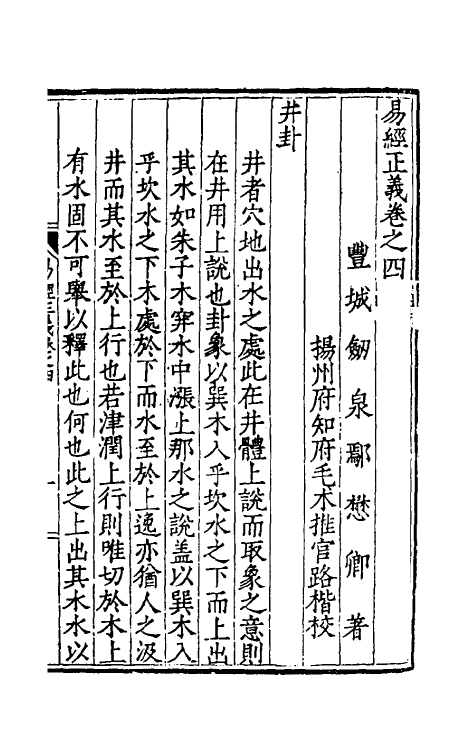 易經正義卷之四
豐城劒泉鄢懋卿著
揚州府知府毛朮推官路楷校
井卦
井者穴地出水之處此在井體上說而取象之意則
在井用上說也卦象以巽木入乎坎水之下而上出
其水如朱子木穽水中漲上那水之說盖以巽木入
乎坎水之下木處於下而水至於上逸亦猶人之汲
井而其水至於上行也若津潤上行則唯切於木上
有水固不可舉以釋此也何也此之上出其木水以